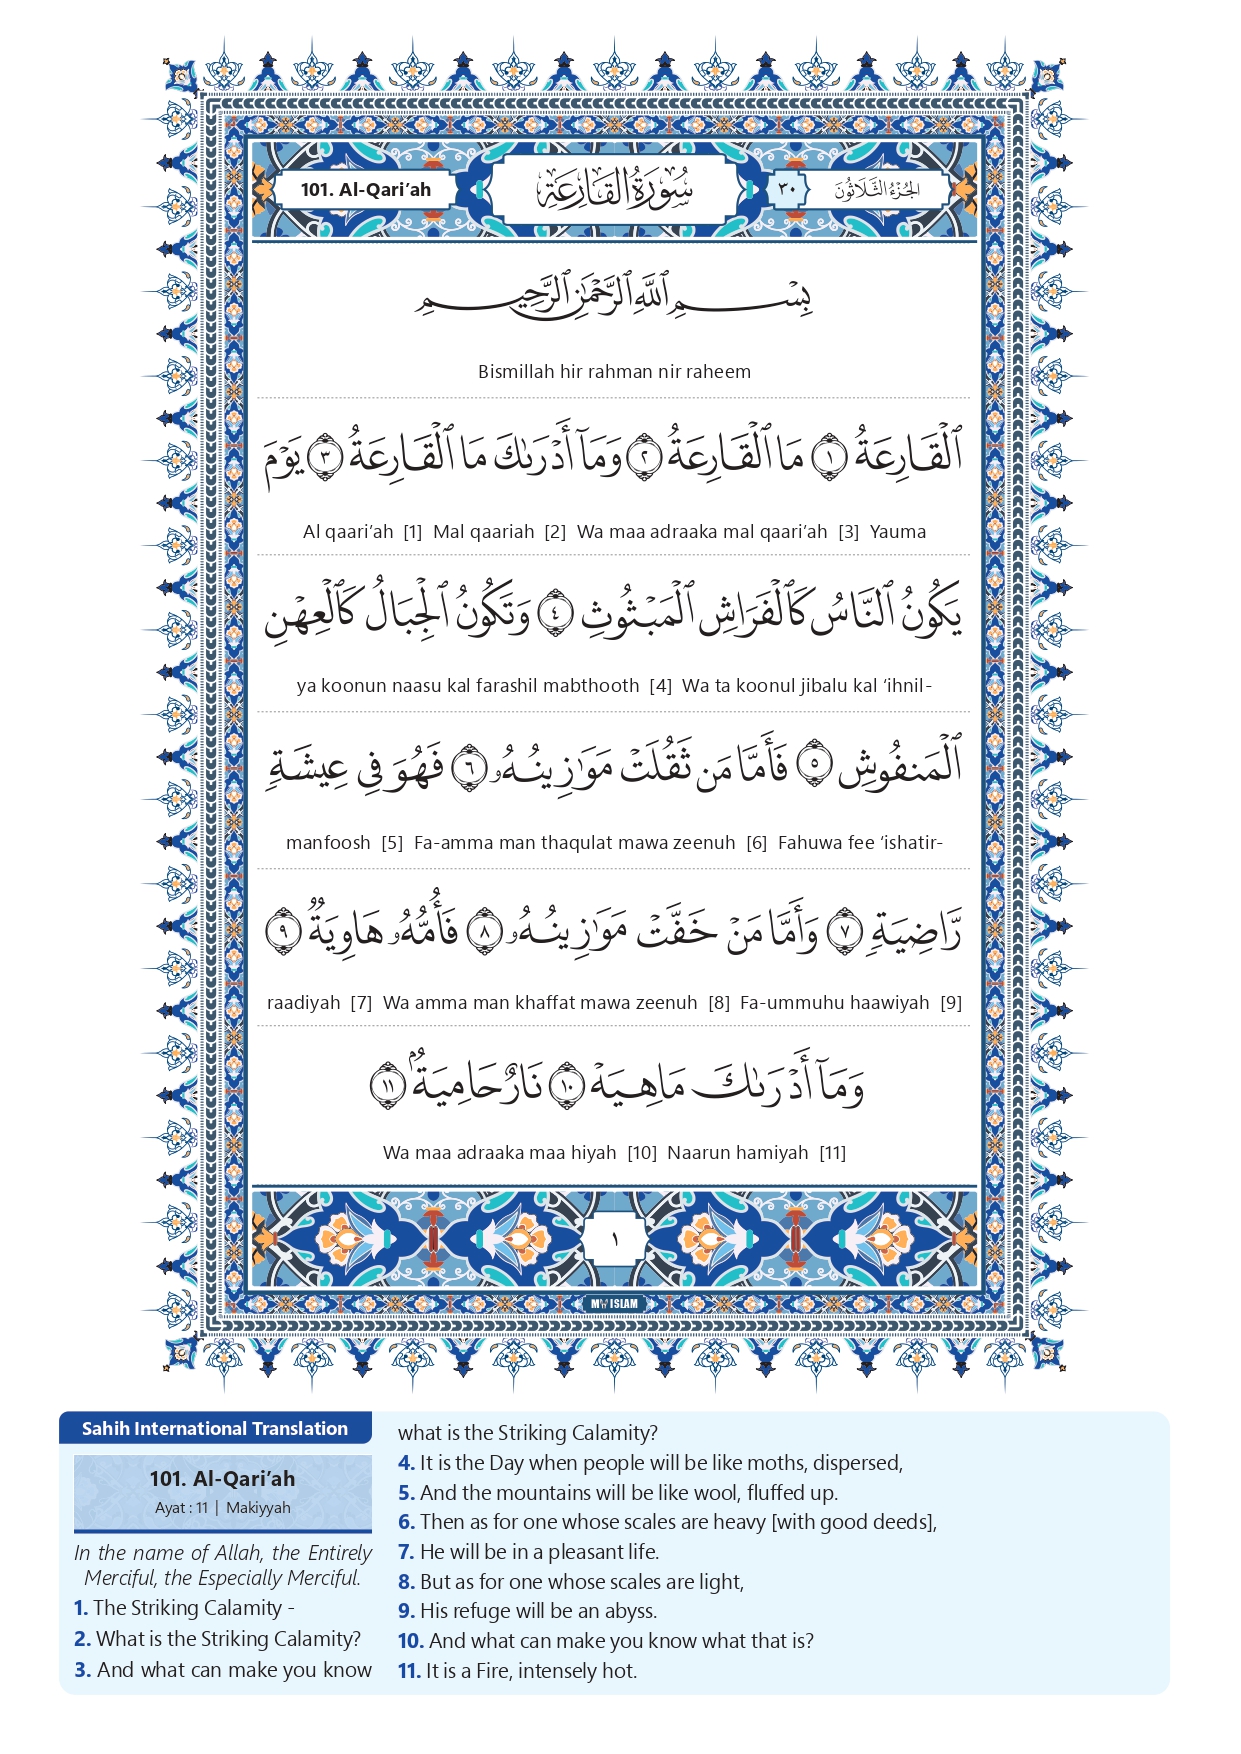 101. Al-Qari’ah
سُورَةُ القَارِعَةِ
٣٠
الجُزْءُ الثَّلَاثُونَ
بِسْمِ ٱللَّهِ ٱلرَّحْمَٰنِ ٱلرَّحِيمِ
Bismillah hir rahman nir raheem
ٱلْقَارِعَةُ ١ مَا ٱلْقَارِعَةُ ٢ وَمَآ أَدْرَىٰكَ مَا ٱلْقَارِعَةُ ٣ يَوْمَ
Al qaari’ah [1] Mal qaariah [2] Wa maa adraaka mal qaari’ah [3] Yauma
يَكُونُ ٱلنَّاسُ كَٱلْفَرَاشِ ٱلْمَبْثُوثِ ٤ وَتَكُونُ ٱلْجِبَالُ كَٱلْعِهْنِ
ya koonun naasu kal farashil mabthooth [4] Wa ta koonul jibalu kal ‘ihnil-
ٱلْمَنفُوشِ ٥ فَأَمَّا مَن ثَقُلَتْ مَوَٰزِينُهُۥ ٦ فَهُوَ فِى عِيشَةٍ
manfoosh [5] Fa-amma man thaqulat mawa zeenuh [6] Fahuwa fee ‘ishatir-
رَّاضِيَةٍ ٧ وَأَمَّا مَنْ خَفَّتْ مَوَٰزِينُهُۥ ٨ فَأُمُّهُۥ هَاوِيَةٌ ٩
raadiyah [7] Wa amma man khaffat mawa zeenuh [8] Fa-ummuhu haawiyah [9]
وَمَآ أَدْرَىٰكَ مَاهِيَهْ ١٠ نَارٌ حَامِيَةٌۢ ١١
Wa maa adraaka maa hiyah [10] Naarun hamiyah [11]
١
MY ISLAM
Sahih International Translation
101. Al-Qari’ah
Ayat : 11 | Makiyyah
In the name of Allah, the Entirely
Merciful, the Especially Merciful.
1. The Striking Calamity -
2. What is the Striking Calamity?
3. And what can make you know
what is the Striking Calamity?
4. It is the Day when people will be like moths, dispersed,
5. And the mountains will be like wool, fluffed up.
6. Then as for one whose scales are heavy [with good deeds],
7. He will be in a pleasant life.
8. But as for one whose scales are light,
9. His refuge will be an abyss.
10. And what can make you know what that is?
11. It is a Fire, intensely hot.